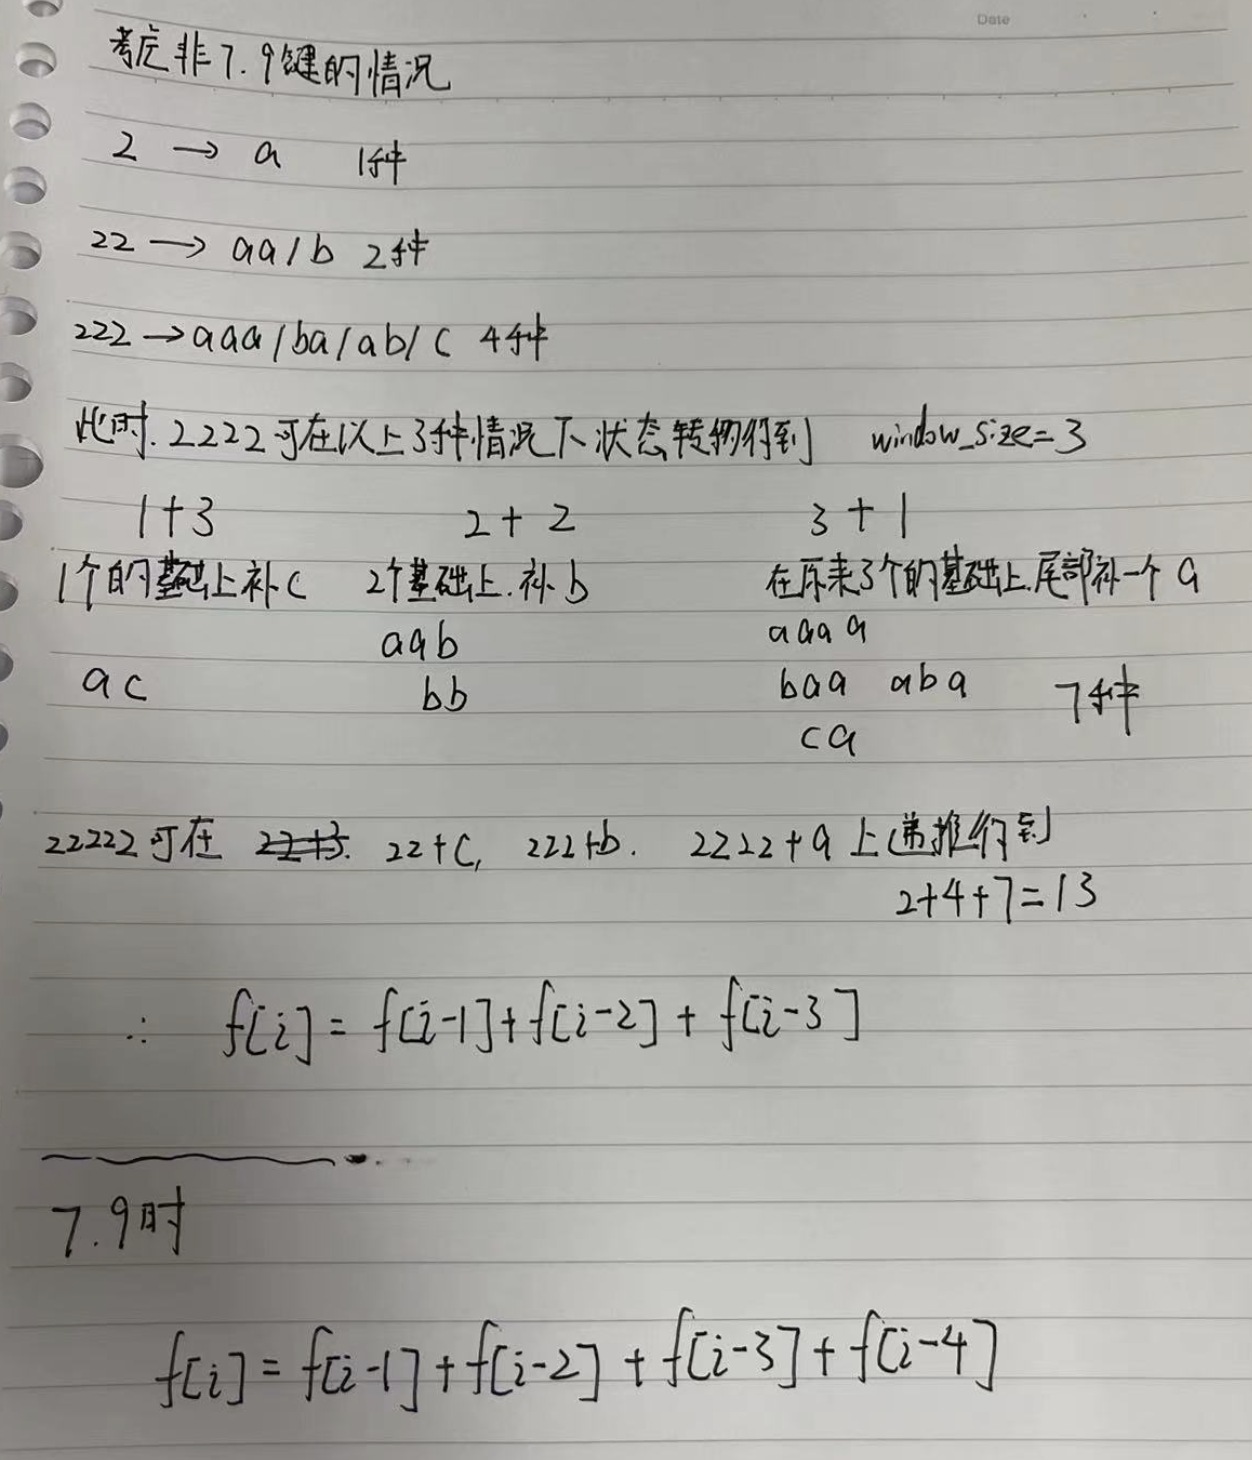 Date
考虑非7.9键的情况
2 → a 1种
22 → aa/b 2种
222 → aaa/ba/ab/c 4种
此时.2222可在以上3种情况下状态转移得到 window_size=3
1+3 2+2 3+1
1个的基础上补c 2个基础上.补b 在原来3个的基础上.尾部补一个a
aab aaaa
ac bb baa aba 7种
ca
22222可在 22+c, 222+b. 2222+a 上递推得到
2+4+7=13
∴ f[i]= f[i-1]+f[i-2]+f[i-3]
7.9时
f[i]=f[i-1]+f[i-2]+f[i-3]+f[i-4]